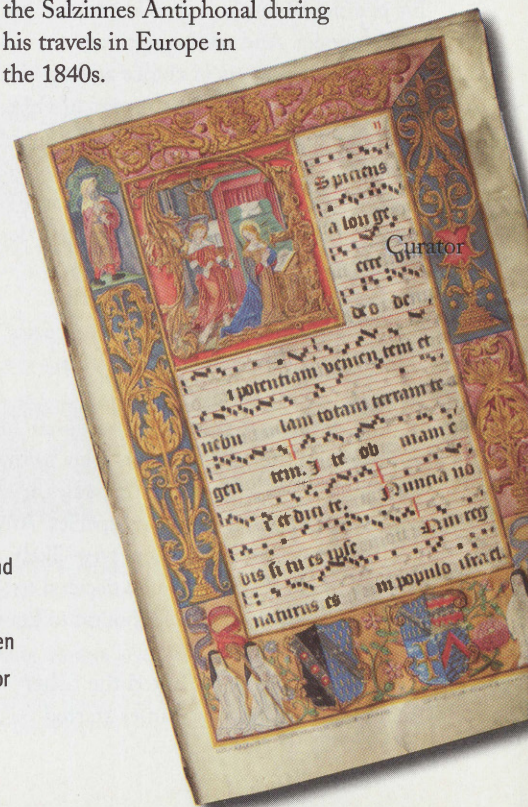 the Salzinnes Antiphonal during
his travels in Europe in
the 1840s.
Spiciens
a lon ge,
ecce vi
deo de
Curator
i potentiam venien tem et
nebu lam totam terram te
gen tem. I te ob viam e
i et dici te, Nuncia no
bis si tu es ipse Qui reg
naturus es in populo israel.
nd
en
or